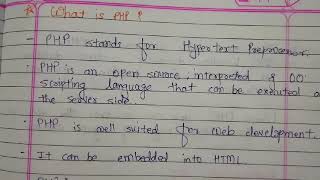 What is PHP?
- PHP stands for Hypertext Preprocessor.
- PHP is an open source, interpreted & OO
scripting language that can be executed a
the server side.
- PHP is well suited for web development.
- It can be embedded into HTML